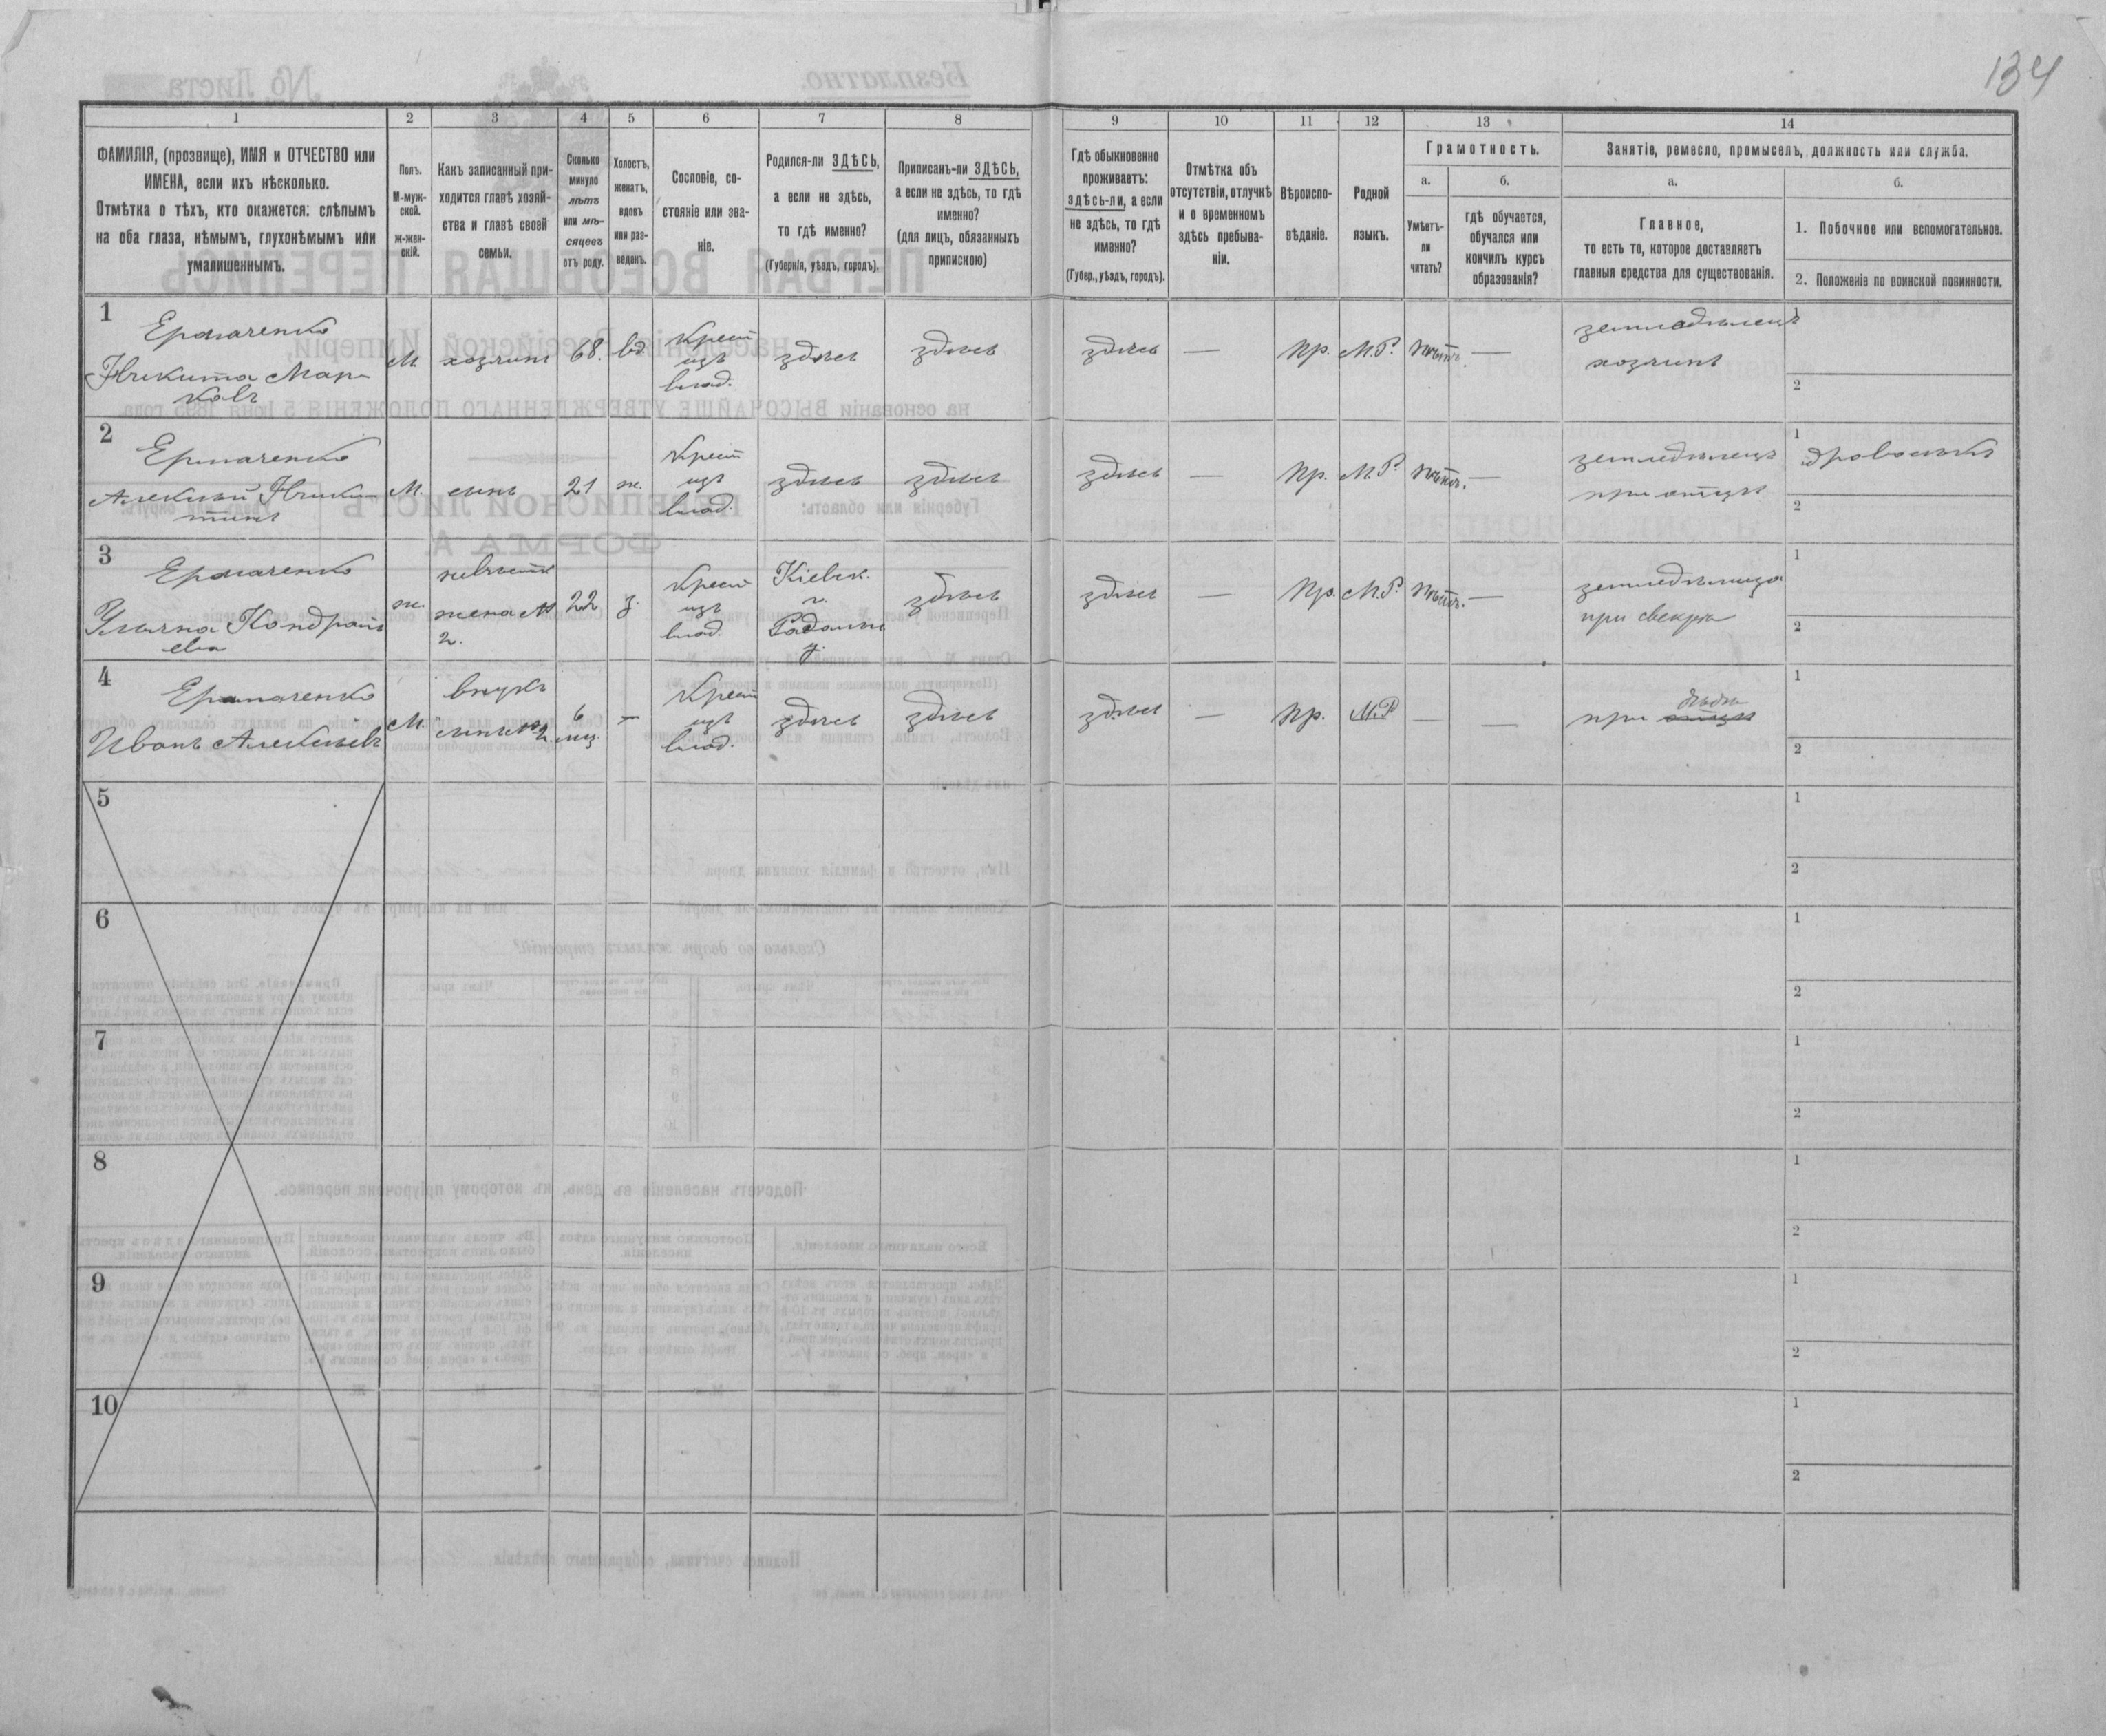 134
1 2 3 4 5 6 7 8 9 10 11 12 13 14
ФАМИЛІЯ, (прозвище), ИМЯ и ОТЧЕСТВО или
ИМЕНА, если ихъ нѣсколько.
Отмѣтка о тѣхъ, кто окажется: слѣпымъ
на оба глаза, нѣмымъ, глухонѣмымъ или
умалишеннымъ.
Полъ.
М-муж-
ской.
ж-жен-
скій.
Какъ записанный при-
ходится главѣ хозяй-
ства и главѣ своей
семьи.
Сколько
минуло
лѣтъ
или мѣ-
сяцевъ
отъ роду.
Холостъ,
женатъ,
вдовъ
или раз-
веденъ.
Сословіе, со-
стояніе или зва-
ніе.
Родился-ли ЗДѢСЬ,
а если не здѣсь,
то гдѣ именно?
(Губернія, уѣздъ, городъ).
Приписанъ-ли ЗДѢСЬ,
а если не здѣсь, то гдѣ
именно?
(для лицъ, обязанныхъ
припискою)
Гдѣ обыкновенно
проживаетъ:
здѣсь-ли, а если
не здѣсь, то гдѣ
именно?
(Губер., уѣздъ, городъ).
Отмѣтка объ
отсутствіи, отлучкѣ
и о временномъ
здѣсь пребыва-
ніи.
Вѣроиспо-
вѣданіе.
Родной
языкъ.
Грамотность.
а.
Умѣетъ-
ли
читать?
б.
гдѣ обучается,
обучался или
кончилъ курсъ
образованія?
Занятіе, ремесло, промыселъ, должность или служба.
а.
Главное,
то есть то, которое доставляетъ
главныя средства для существованія.
б.
1. Побочное или вспомогательное.
2. Положеніе по воинской повинности.
1
Ермаченко
Никита Мар-
ковъ
М.
хозяинъ
68.
вд.
Крест
изъ
влад.
здѣсь
здѣсь
здѣсь
—
Пр.
М.Р.
нѣтъ.
—
земледѣлецъ
хозяинъ
1
2
2
Ермаченко
Алексѣй Ники-
тинъ
М.
сынъ
21
ж.
Крест
изъ
влад.
здѣсь
здѣсь
здѣсь
—
Пр.
М.Р.
нѣтъ.
—
земледѣлецъ
при отцѣ
1
2
3
Ермаченко
Ульяна Кондрать
ева
ж.
невѣстка
жена №
2.
22
з.
Крест
изъ
влад.
Кіевск.
г.
у.
здѣсь
здѣсь
—
Пр.
М.Р.
нѣтъ.
—
земледѣлица
при свекрѣ
1
2
4
Ермаченко
Иванъ Алексѣевъ
М.
внукъ
сынъ №2
6
мц.
—
Крест
изъ
влад.
здѣсь
здѣсь
здѣсь
—
Пр.
М.Р
—
—
дѣдѣ
при отцѣ
1
2
5
1
2
6
1
2
7
1
2
8
1
2
9
1
2
10
1
2